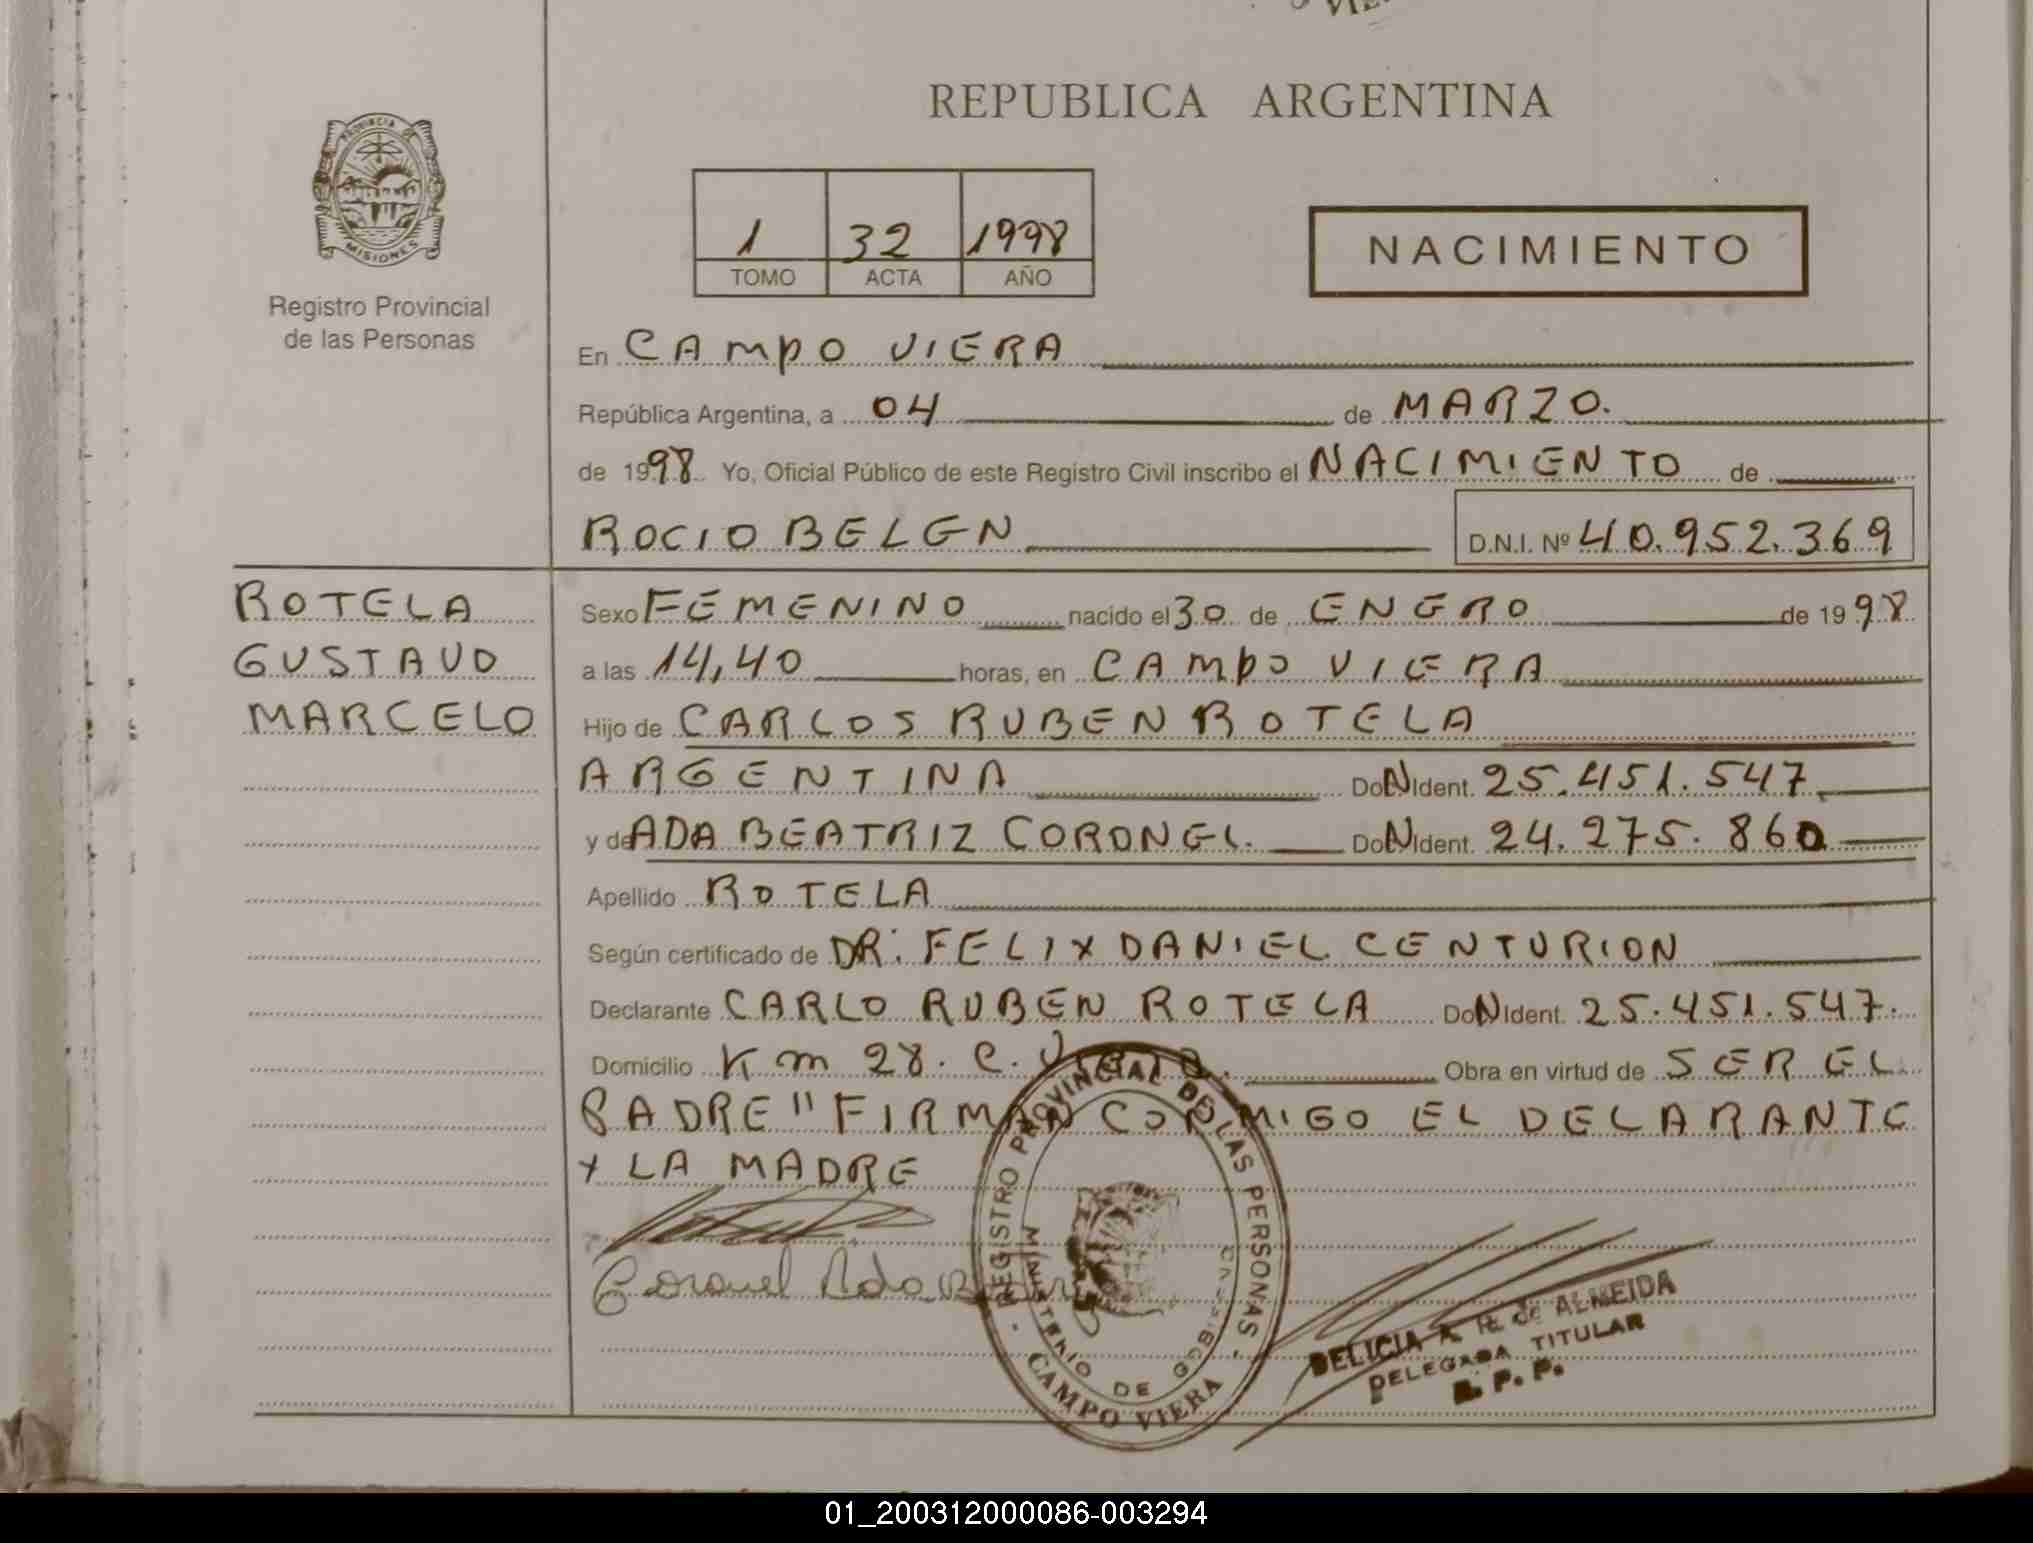 REPUBLICA ARGENTINA
PROVINCIA DE
MISIONES
Registro Provincial
de las Personas
1 32 1998
TOMO ACTA AÑO
NACIMIENTO
En CAMPO VIERA
República Argentina, a 04 de MARZO.
de 1998 Yo, Oficial Público de este Registro Civil inscribo el NACIMIENTO de
ROCIO BELEN D.N.I. Nº 40.952.369
ROTELA
GUSTAVO
MARCELO
Sexo FEMENINO nacido el 30 de ENERO de 1998
a las 14,40 horas, en CAMPO VIERA
Hijo de CARLOS RUBEN ROTELA
ARGENTINA DoNIdent. 25.451.547
y de ADA BEATRIZ CORONEL. DoNIdent. 24.275.860
Apellido ROTELA
Según certificado de DR. FELIX DANIEL CENTURION
Declarante CARLO RUBEN ROTELA DoNIdent. 25.451.547.
Domicilio Km 28. C. Viera. Obra en virtud de SER EL
PADRE" FIRMAN CONMIGO EL DELARANTE
Y LA MADRE
Coronel Ada
REGISTRO PROVINCIAL DE LAS PERSONAS
MINISTERIO DE GOBIERNO
CAMPO VIERA
DELICIA A. de ALMEIDA
DELEGADA TITULAR
R. P. P.
01_200312000086-003294